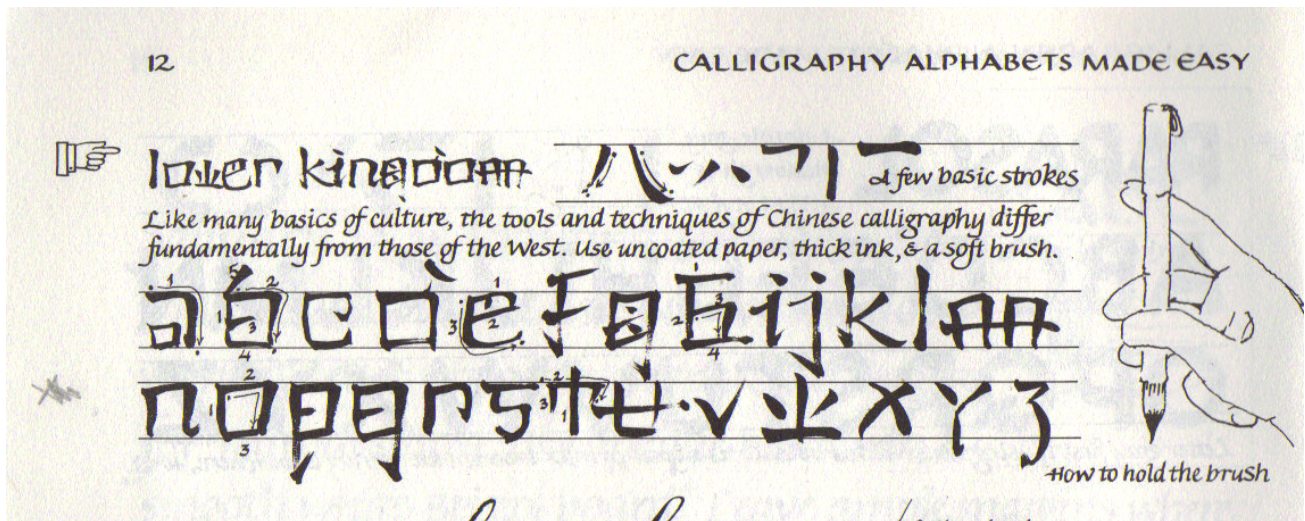 12 CALLIGRAPHY ALPHABETS MADE EASY
lower kingdom A few basic strokes
Like many basics of culture, the tools and techniques of Chinese calligraphy differ
fundamentally from those of the West. Use uncoated paper, thick ink, & a soft brush.
a b c d e f g h i j k l m
n o p q r s t u v w x y z
How to hold the brush